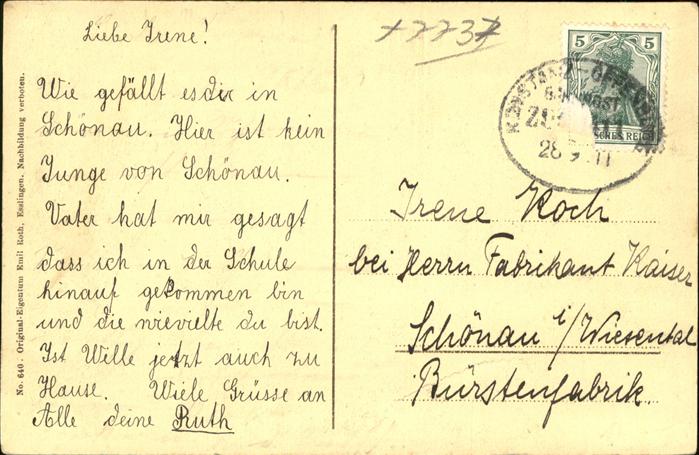 Liebe Irene!
Wie gefällt es dir in
Schönau. Hier ist kein
Junge von Schönau.
Vater hat mir gesagt
dass ich in der Schule
hinauf gekommen bin
und die wievielte du bist.
Ist Wille jetzt auch zu
Hause. Wiele Grüsse an
Alle deine Ruth
No. 640. Original-Eigentum Emil Roth, Esslingen. Nachbildung verboten.
5 5
KONSTANZ - OFFENBURG
BAHNPOST
ZUG
28 9 11
Irene Koch
bei Herrn Fabrikant Kaiser
Schönau i/Wiesental
Bürstenfabrik.